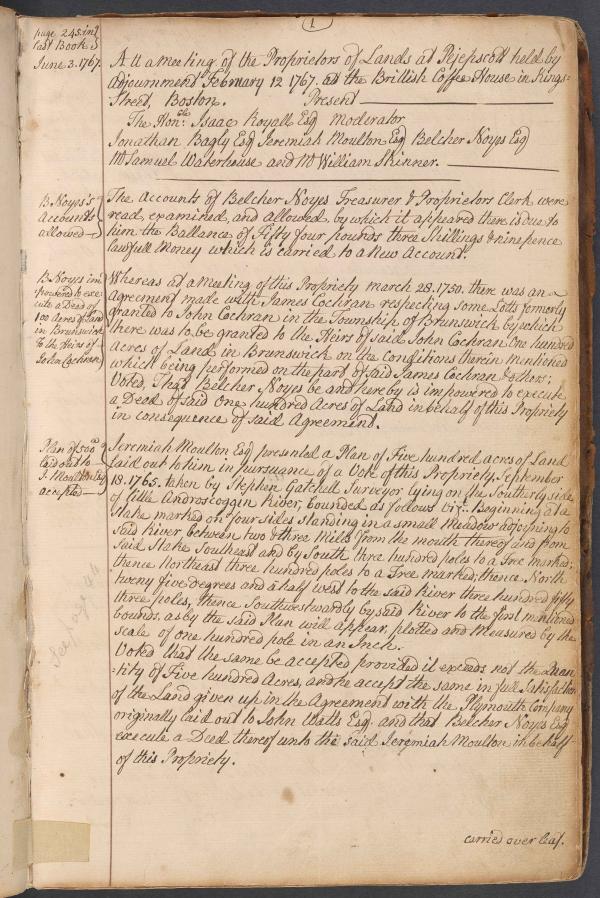 1
page 245 in ye
last Book &
June 3. 1767.
At a meeting of the Proprietors of Lands at Pejepscott held by
adjournment February 12 1767. at the Brittish Coffee House in Kings=
Street, Boston. Present
The Honble Isaac Royall Esq Moderator
Jonathan Bagly Esq Jeremiah Moulton Esq Belcher Noyes Esq
Mr Samuel Waterhouse and Mr William Skinner.
B Noyes's
Accounts
allowed
The Accounts of Belcher Noyes Treasurer & Proprietors Clerk were
read, examined, and allowed by which it appeared there is due to
him the Ballance of Fifty four pounds three Shillings & ninepence
lawfull Money which is carried to a New Account.
B Noyes im
powered to exe
cute a Deed of
100 Acres of Land
in Brunswick
to the Heirs of
John Cochran
Whereas at a meeting of this Propriety march 28. 1750. there was an
Agreement made with James Cochran respecting some Lotts formerly
granted to John Cochran in the Township of Brunswick by which
there was to be granted to the Heirs of said John Cochran One hundred
acres of Land in Brunswick on the Conditions therein mentioned
which being performed on the part of said James Cochran & others;
Voted, That Belcher Noyes be and hereby is impowered to execute
a Deed of said One hundred Acres of Land in behalf of this Propriety
in consequence of said Agreement.
Plan of 500 a
laid out to
J. Moulton Esq
accepted
Jeremiah Moulton Esq presented a Plan of Five hundred acres of Land
laid out to him in pursuance of a Vote of this Propriety September
18. 1765. taken by Stephen Gatchell Surveyor lying on the Southerly side
of little Androscoggin River, bounded as follows viz. Beginning at a
Stake marked on four sides standing in a small Meadow adjoyning to
said River between two & three Miles from the mouth thereof and from
said Stake Southeast and by South three hundred poles to a Tree marked;
thence Northeast three hundred poles to a Tree marked; thence North
twenty five Degrees and a half west to the said River three hundred fifty
three poles, thence Southwestwardly by said River to the first mentioned
bounds, as by the said Plan will appear, plotted and measured by the
scale of one hundred pole in an Inch.
Voted that the same be accepted provided it exceeds not the Quan
=tity of Five hundred Acres, and he accept the same in full Satisfaction
of the Land given up in the Agreement with the Plymouth Company
originally laid out to John Watts Esq and that Belcher Noyes Esq
execute a Deed thereof unto the said Jeremiah Moulton in behalf
of this Propriety.
See page 46
carried over leaf.